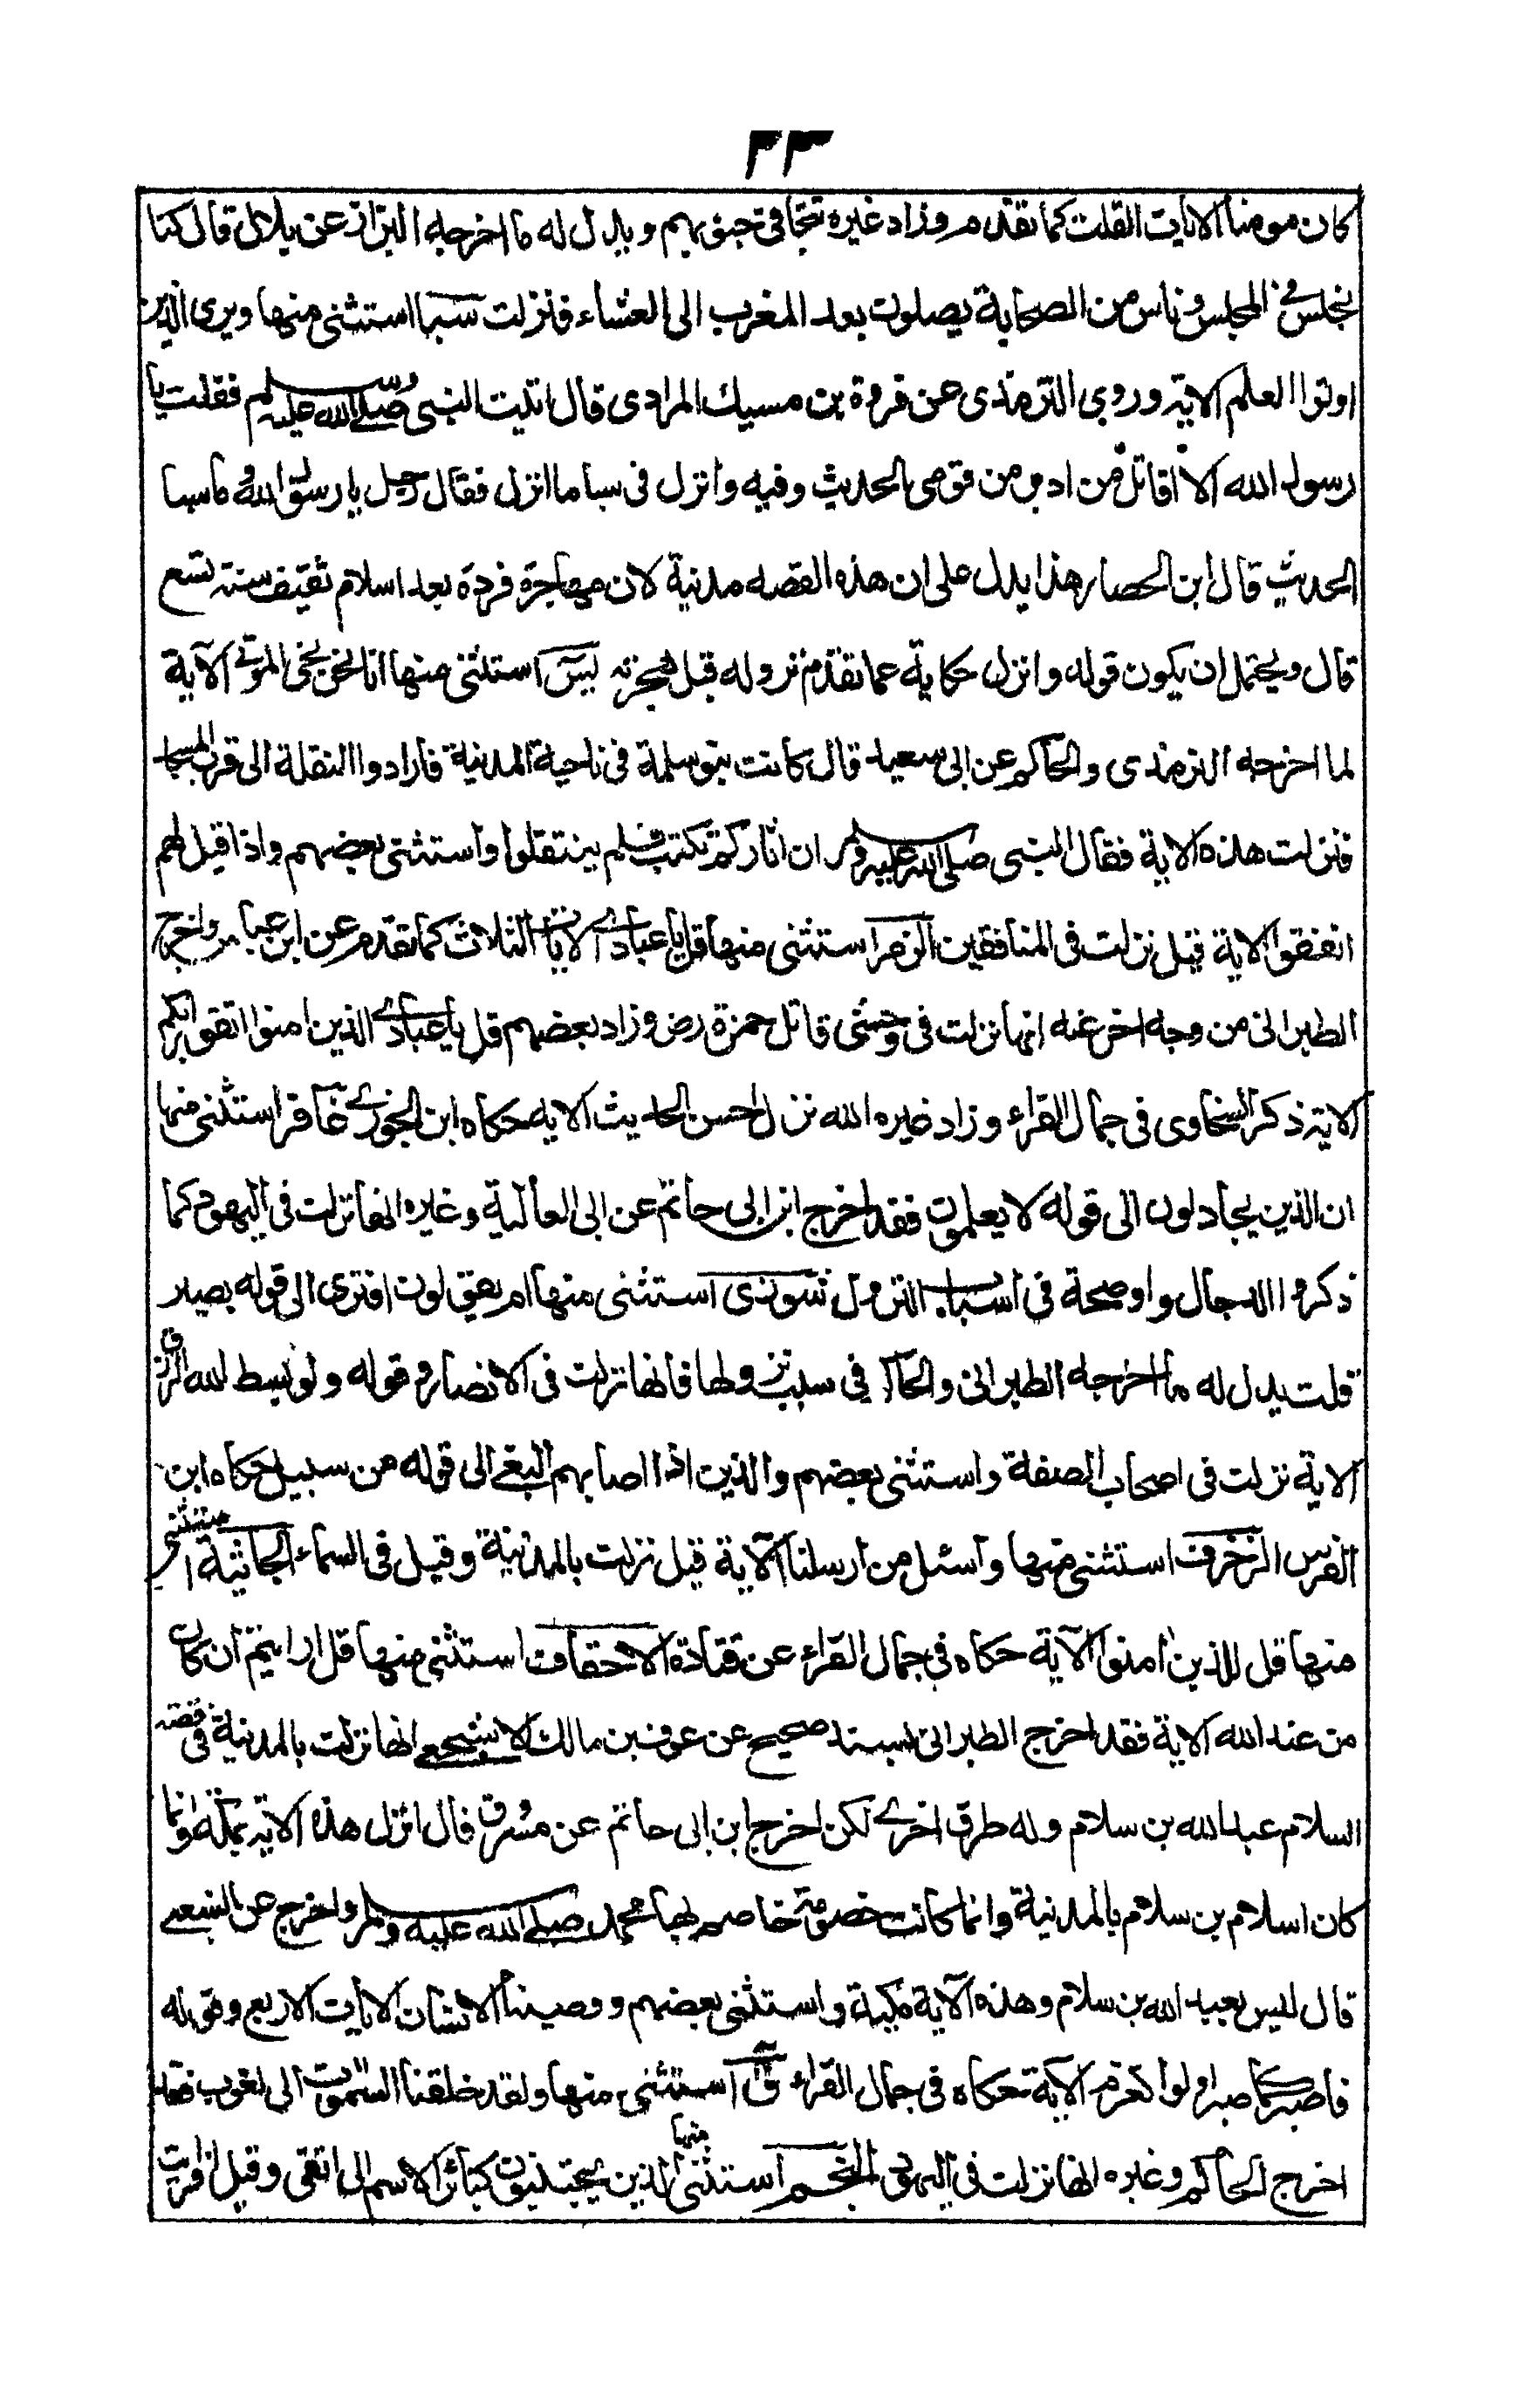 ٣٣
كان مومنا الايات الثلث كما تقدم وزاد غيره تتجافى جنوبهم ويدل له ما اخرجه البزاز عن بلال قال كنا
نجلس فى المجلس وناس من الصحابة يصلون بعد المغرب الى العشاء فنزلت سبا استثنى منها ويرى الذين
اوتوا العلم الاية وروى الترمذى عن فروة بن مسيك المرادى قال اتيت النبى صلى الله عليه وسلم فقلت يا
رسول الله الا اقاتل من ادبر من قومى الحديث وفيه وانزل فى سبا ما انزل فقال رجل يا رسول الله وما سبا
الحديث قال ابن الحصار هذا يدل على ان هذه القصه مدنية لان مهاجرة فردة بعد اسلام ثقيف سنة تسع
قال ويحتمل ان يكون قوله وانزل حكاية عما تقدم نزوله قبل هجرته يس استثنى منها انا نحن نحى الموتى الآية
لما اخرجه الترمذى والحاكم عن ابى سعيد قال كانت بنو سلمة فى ناحية المدنية فارادوا النقلة الى قرب المسجد
فنزلت هذه الاية فقال النبى صلى الله عليه وسلم ان اثاركم تكتب فلم ينتقلوا واستثنى بعضهم واذا قيل لهم
انفقوا الاية قيل نزلت فى المنافقين الزمر استثنى منها قل يا عبادى الايات الثلاث كما تقدم عن ابن عباس واخرج
الطبرانى من وجه اخر عنه انها نزلت فى وحشى قاتل حمزة رض وزاد بعضهم قل يا عبادى الذين امنوا اتقوا ربكم
الاية ذكر السخاوى فى جمال القراء وزاد غيره الله نزل احسن الحديث الايه حكاه ابن الجوزى غافر استثنى منها
ان الذين يجادلون الى قوله لا يعلمون فقد اخرج ابن ابى حاتم عن ابى العالية وغيره انها نزلت فى اليهود كما
ذكروا الدجال واوضحة فى اسباب النزول شورى استثنى منها ام يقولون افترى الى قوله بصير
قلت يدل له ما اخرجه الطبرانى والحاكم فى سبب نزولها فانها نزلت فى الانصار وقوله ولو بسط الله الرزق
الاية نزلت فى اصحاب الصفة واستثنى بعضهم والذين اذا اصابهم البغى الى قوله من سبيل حكاه ابن
الفرس الزخرف استثنى منها وآسئل من ارسلنا الآية قيل نزلت بالمدنية وقيل فى السماء الجاثية استثنى
منها قل للذين امنوا الآية حكاه فى جمال القراء عن قتادة الاحقاف استثنى منها قل ارايتم ان كان
من عند الله الاية فقد اخرج الطبرانى بسند صحيح عن عوف بن مالك الاشجعى انها نزلت بالمدنية فى قصة
السلام عبد الله بن سلام وله طرق اخرى لكن اخرج ابن ابى حاتم عن مسروق قال انزل هذه الاية بمكة وانما
كان اسلام بن سلام بالمدنية وانما كانت خصومة خاصم بها محمد صلى الله عليه وسلم واخرج عن الشعبى
قال ليس بعبد الله بن سلام وهذه الآية مكية واستثنى بعضهم ووصينا الانسان الايات الاربع وقوله
فاصبر كما صبر اولوا العزم الآية حكاه فى جمال القراء ق استثنى منها ولقد خلقنا السموت الى لغوب فقد
اخرج الحاكم وغيره انها نزلت فى اليهود النجم استثنى منها الذين يجتنبون كبائر الاسم الى اتقى وقيل افرايت